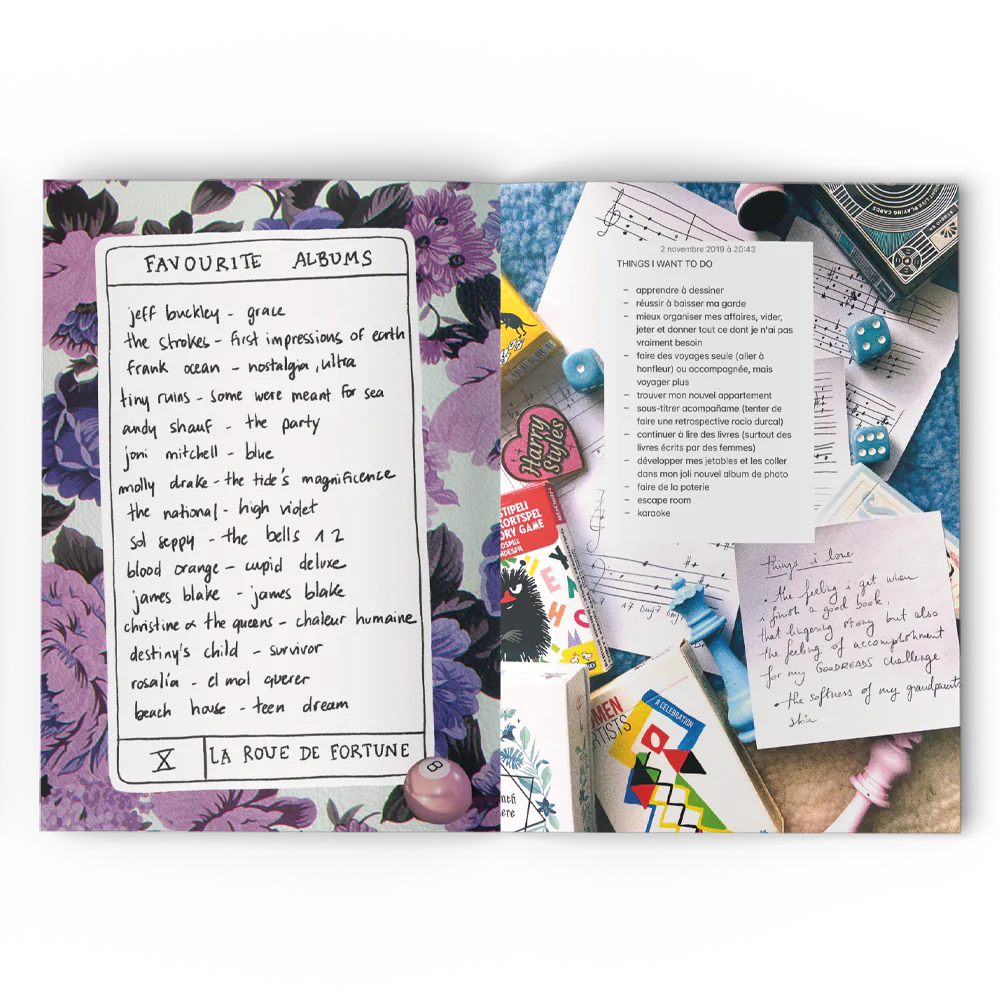 FAVOURITE ALBUMS
jeff buckley - grace
the strokes - first impressions of earth
frank ocean - nostalgia, ultra
tiny ruins - some were meant for sea
andy shauf - the party
joni mitchell - blue
molly drake - the tide's magnificence
the national - high violet
sol seppy - the bells 1 2
blood orange - cupid deluxe
james blake - james blake
christine & the queens - chaleur humaine
destiny's child - survivor
rosalía - el mal querer
beach house - teen dream
X LA ROUE DE FORTUNE
8
2 novembre 2019 à 20:43
THINGS I WANT TO DO
– apprendre à dessiner
– réussir à baisser ma garde
– mieux organiser mes affaires, vider,
jeter et donner tout ce dont je n'ai pas
vraiment besoin
– faire des voyages seule (aller à
honfleur) ou accompagnée, mais
voyager plus
– trouver mon nouvel appartement
– sous-titrer acompañame (tenter de
faire une retrospective rocio durcal)
– continuer à lire des livres (surtout des
livres écrits par des femmes)
– développer mes jetables et les coller
dans mon joli nouvel album de photo
– faire de la poterie
– escape room
– karaoke
PLAYING CARDS
Harry
Styles
STIPELI
KORTSPEL
ORY GAME
things i love
• the feeling i get when
i finish a good book,
that lingering story but also
the feeling of accomplishment
for my GOODREADS challenge
• the softness of my grandparents
skin
A CELEBRATION
MEN
ARTISTS